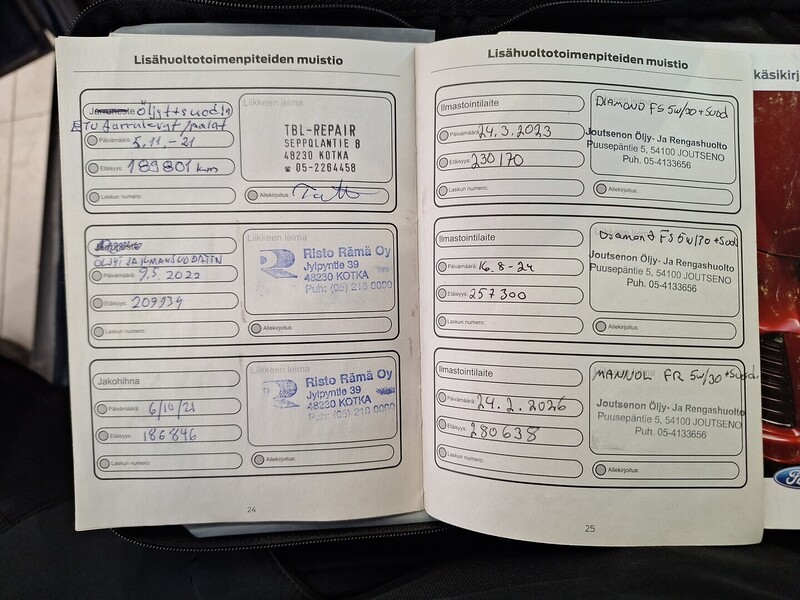 Lisähuoltotoimenpiteiden muistio
Jarruneste Öljyt+suodin
ETU Jarrulevyt/palat
Päivämäärä: 5.11.-21
Etäisyys: 189801 km
Laskun numero:
Liikkeen leima
TBL-REPAIR
SEPPOLANTIE 8
48230 KOTKA
☎ 05-2264458
Allekirjoitus:
ÖLJYT JA ILMANSUODATIN
Päivämäärä: 9.5.2022
Etäisyys: 209934
Laskun numero:
Liikkeen leima
Risto Rämä Oy
Jylpyntie 39
48230 KOTKA
Puh: (05) 218 0000
Allekirjoitus:
Jakohihna
Päivämäärä: 6/10/21
Etäisyys: 186846
Laskun numero:
Liikkeen leima
Risto Rämä Oy
Jylpyntie 39
48230 KOTKA
Puh: (05) 218 0000
Allekirjoitus:
24
Lisähuoltotoimenpiteiden muistio
Ilmastointilaite
Päivämäärä: 24.3.2023
Etäisyys: 230170
Laskun numero:
DIAMOND FS 5w/30+Suod
Joutsenon Öljy- Ja Rengashuolto
Puusepäntie 5, 54100 JOUTSENO
Puh. 05-4133656
Allekirjoitus:
Ilmastointilaite
Päivämäärä: 16.8-24
Etäisyys: 257300
Laskun numero:
Diamond FS 5w/30+Suod
Joutsenon Öljy- Ja Rengashuolto
Puusepäntie 5, 54100 JOUTSENO
Puh. 05-4133656
Allekirjoitus:
Ilmastointilaite
Päivämäärä: 24.2.2026
Etäisyys: 280638
Laskun numero:
MANNOL FR 5w/30+Suod
Joutsenon Öljy- Ja Rengashuolto
Puusepäntie 5, 54100 JOUTSENO
Puh. 05-4133656
Allekirjoitus:
25
käsikirj